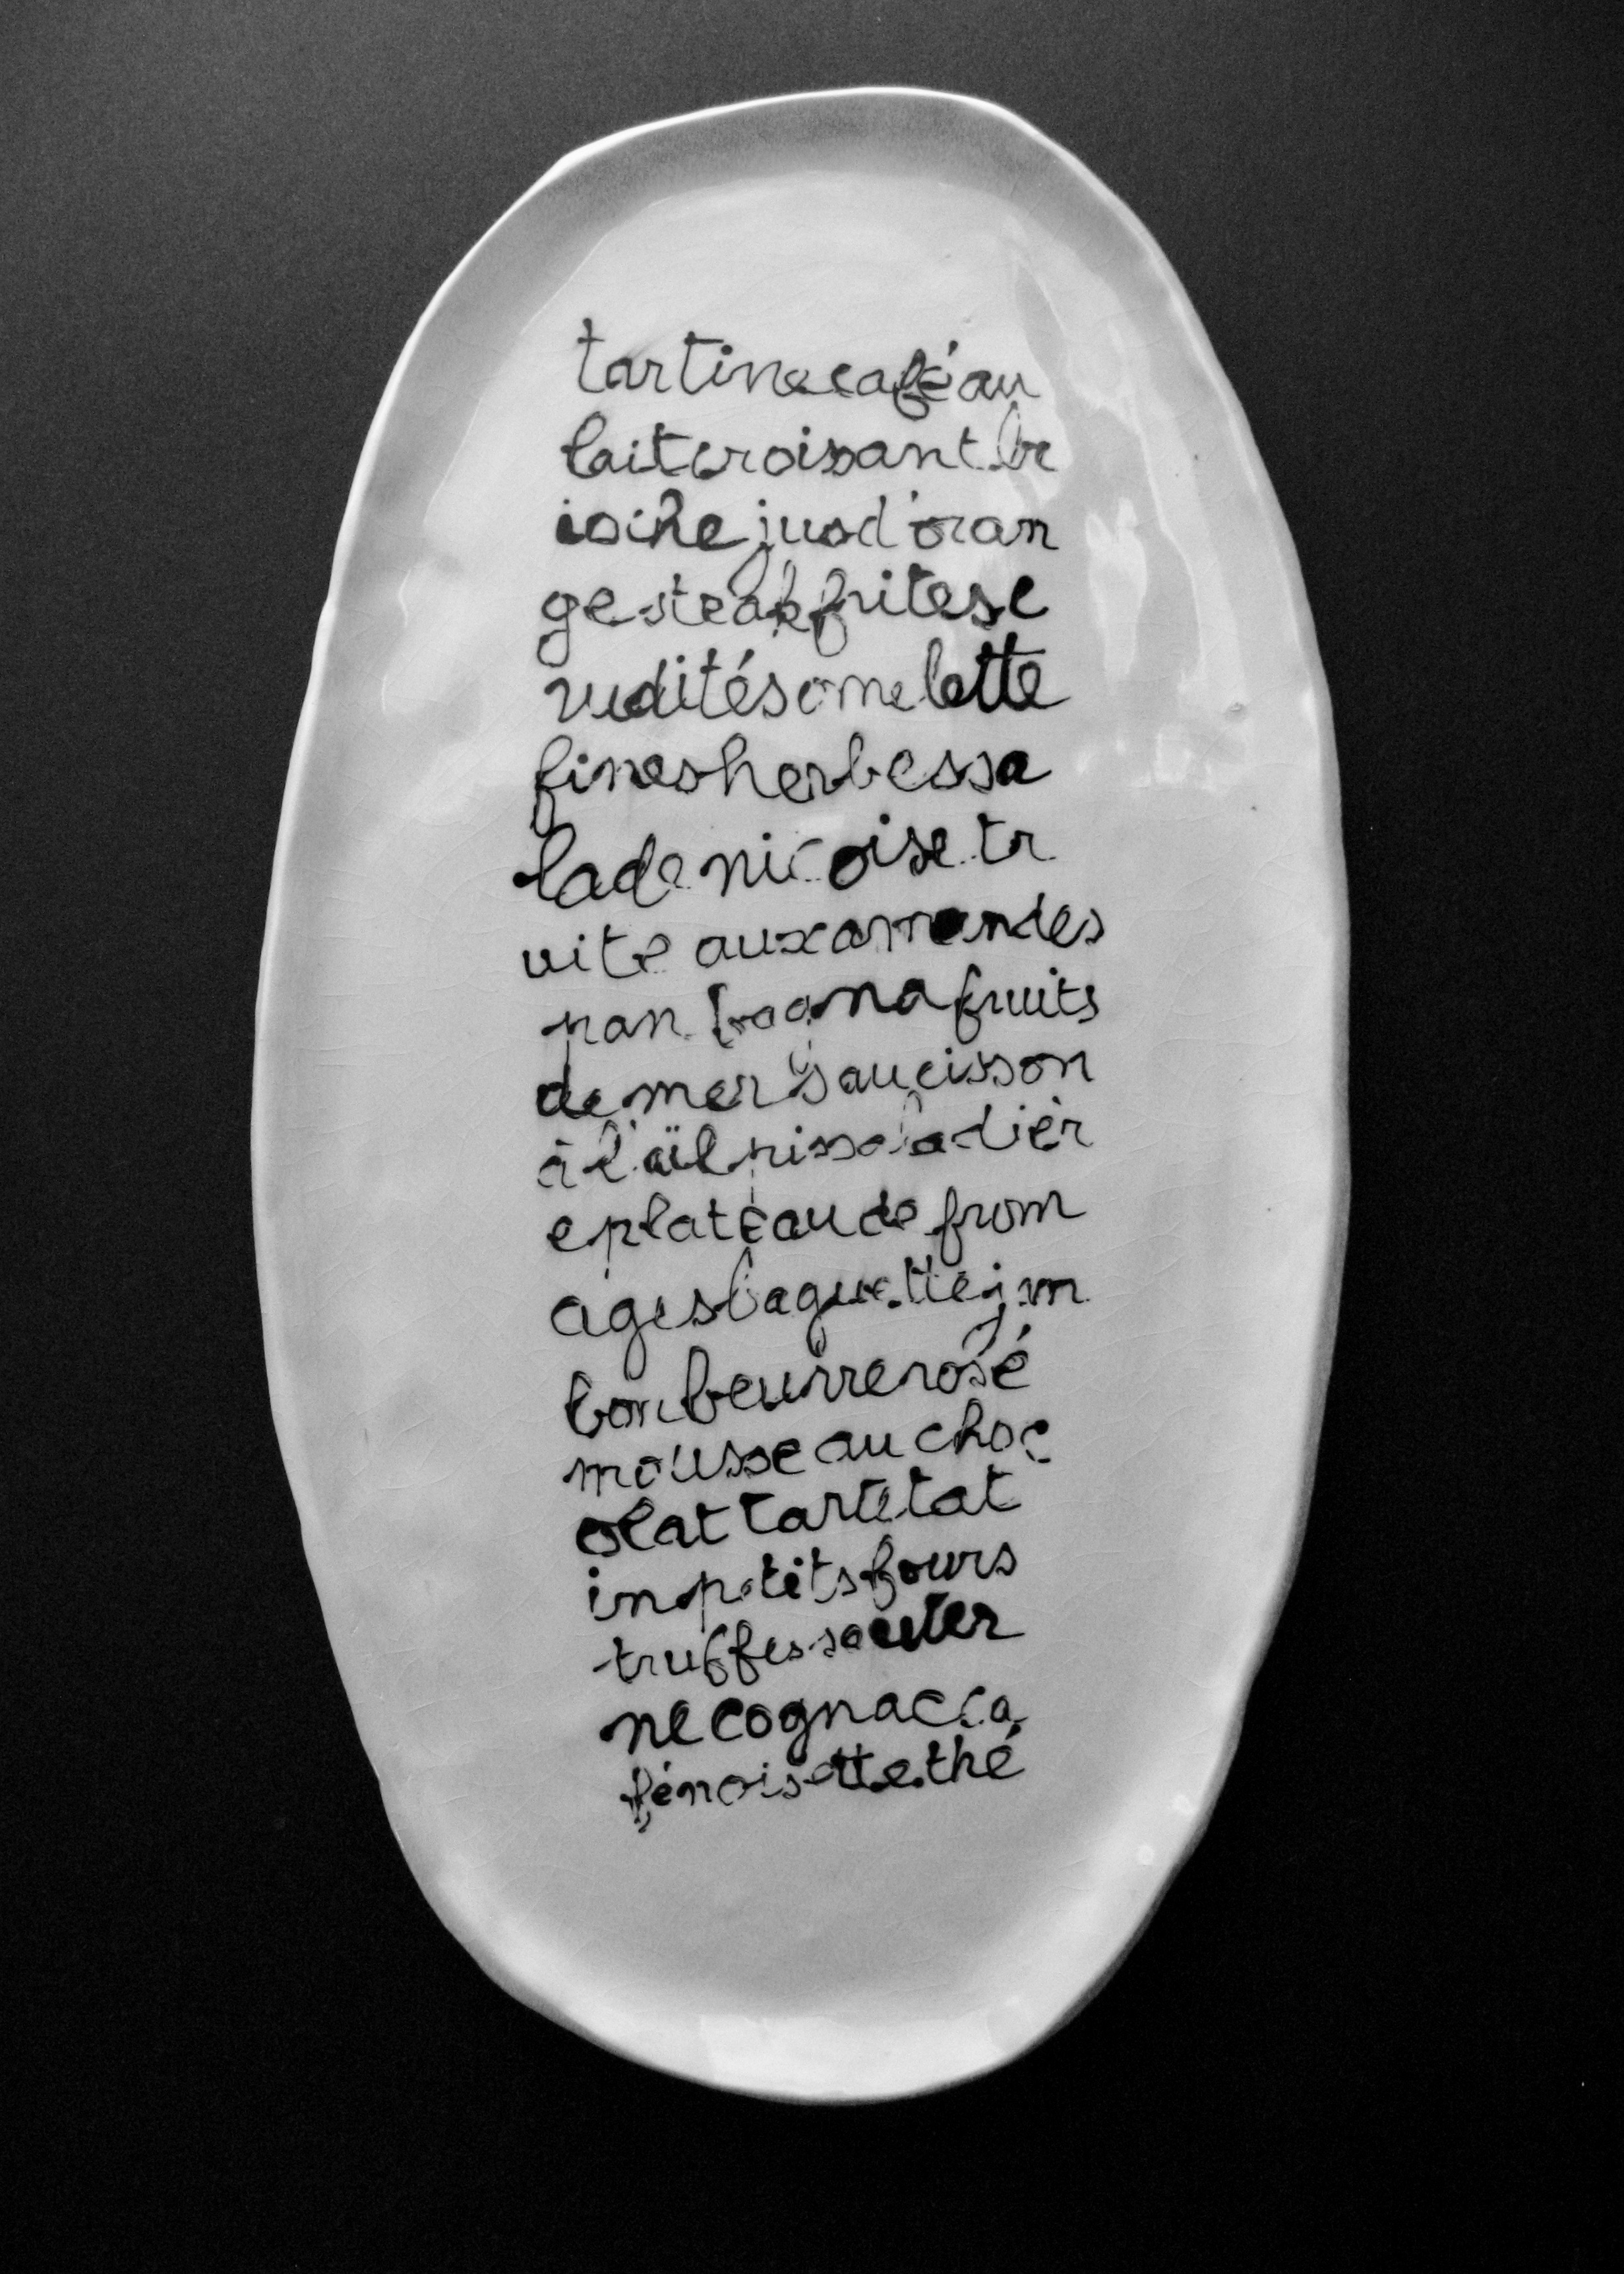 tartinecaféau
laitcroissantbr
ioche jusd'oran
gesteakfritesc
rudités omelette
finesherbessa
lade nicoise tr
uite auxamandes
pan bagna fruits
de mer saucisson
à l'ail pissaladièr
eplateau de from
ages baguette jam
bonbeurrerosé
mousse au choc
olat tartetat
inpetits fours
truffes sauter
ne cognac ca
fénoisette thé